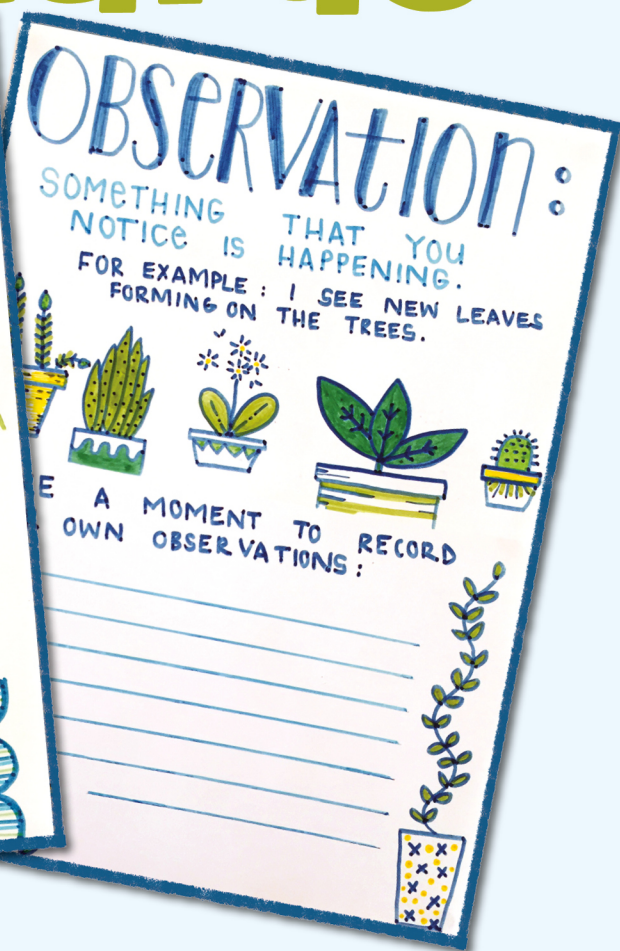 OBSERVATION:
SOMETHING THAT YOU
NOTICE IS HAPPENING.
FOR EXAMPLE: I SEE NEW LEAVES
FORMING ON THE TREES.
A MOMENT TO RECORD
OWN OBSERVATIONS: